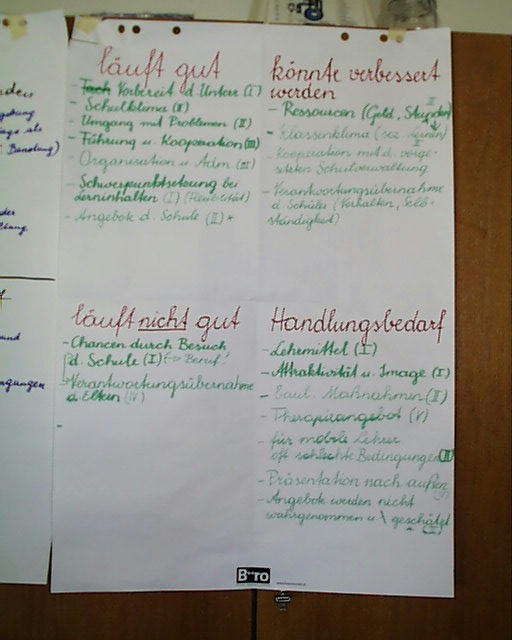 läuft gut
- Vorbereit d. Unterr (I)
- Schulklima (II)
- Umgang mit Problemen (II)
- Führung u. Kooperation (III)
- Organisation u. Adm (III)
- Schwerpunktsetzung bei
Lerninhalten (I) (Flexibilität)
- Angebote d. Schule (II) *
könnte verbessert
werden
- Ressourcen (Geld, Stunden)
- Klassenklima (soz. Lernen)
II
- Kooperation mit d. vorge-
setzten Schulverwaltung
- Verantwortungsübernahme
d. Schüler (Verhalten, Selb-
ständigkeit)
läuft nicht gut
- Chancen durch Besuch
d. Schule (I) (-> Beruf!
- Verantwortungsübernahme
d. Eltern (IV)
-
Handlungsbedarf
- Lehrmittel (I)
- Attraktivität u. Image (I)
- Baul. Maßnahmen (II)
- Therapieangebot (V)
- für mobile Lehrer
oft schlechte Bedingungen (II)
- Präsentation nach außen
- Angebote werden nicht
wahrgenommen u. geschätzt
und